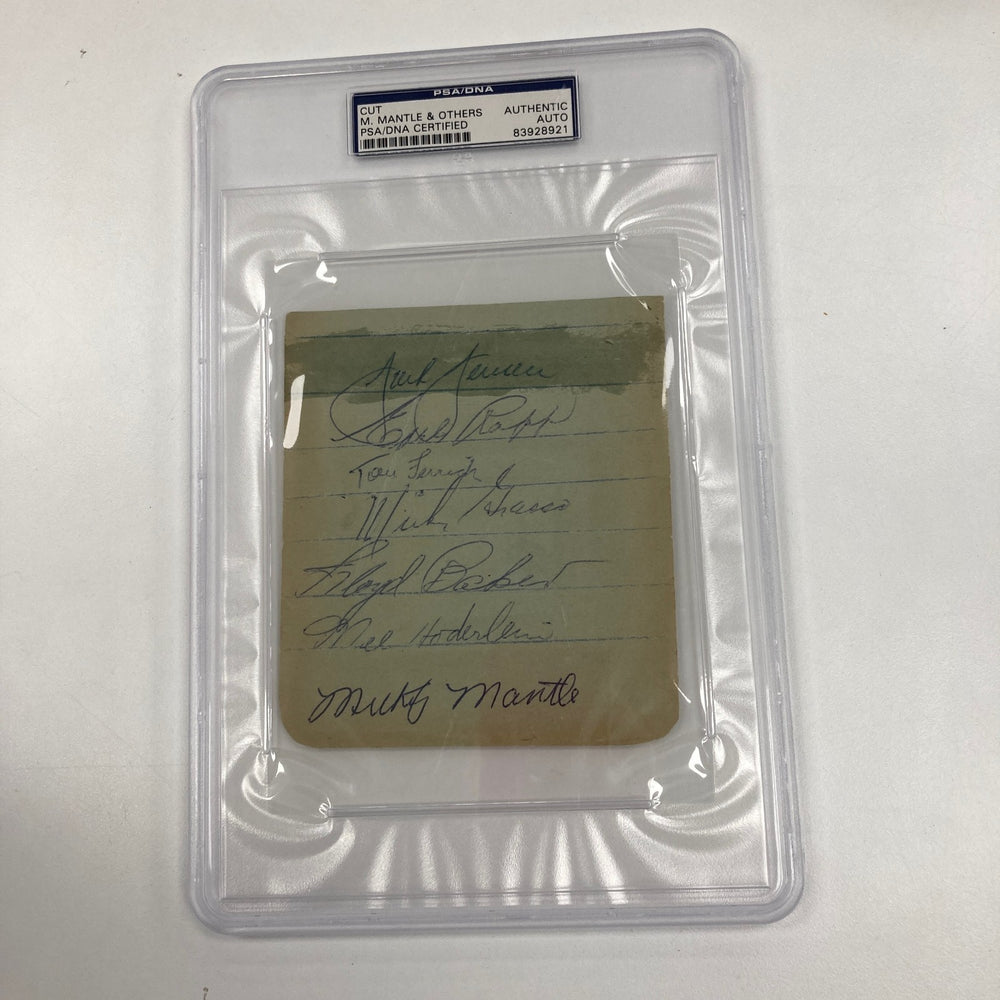 PSA/DNA
CUT
M. MANTLE & OTHERS AUTHENTIC
PSA/DNA CERTIFIED AUTO
83928921
Jack Jensen
Earl Rapp
Tom Ferrick
Mickey Grasso
Floyd Baker
Mel Hoderlein
Mickey Mantle